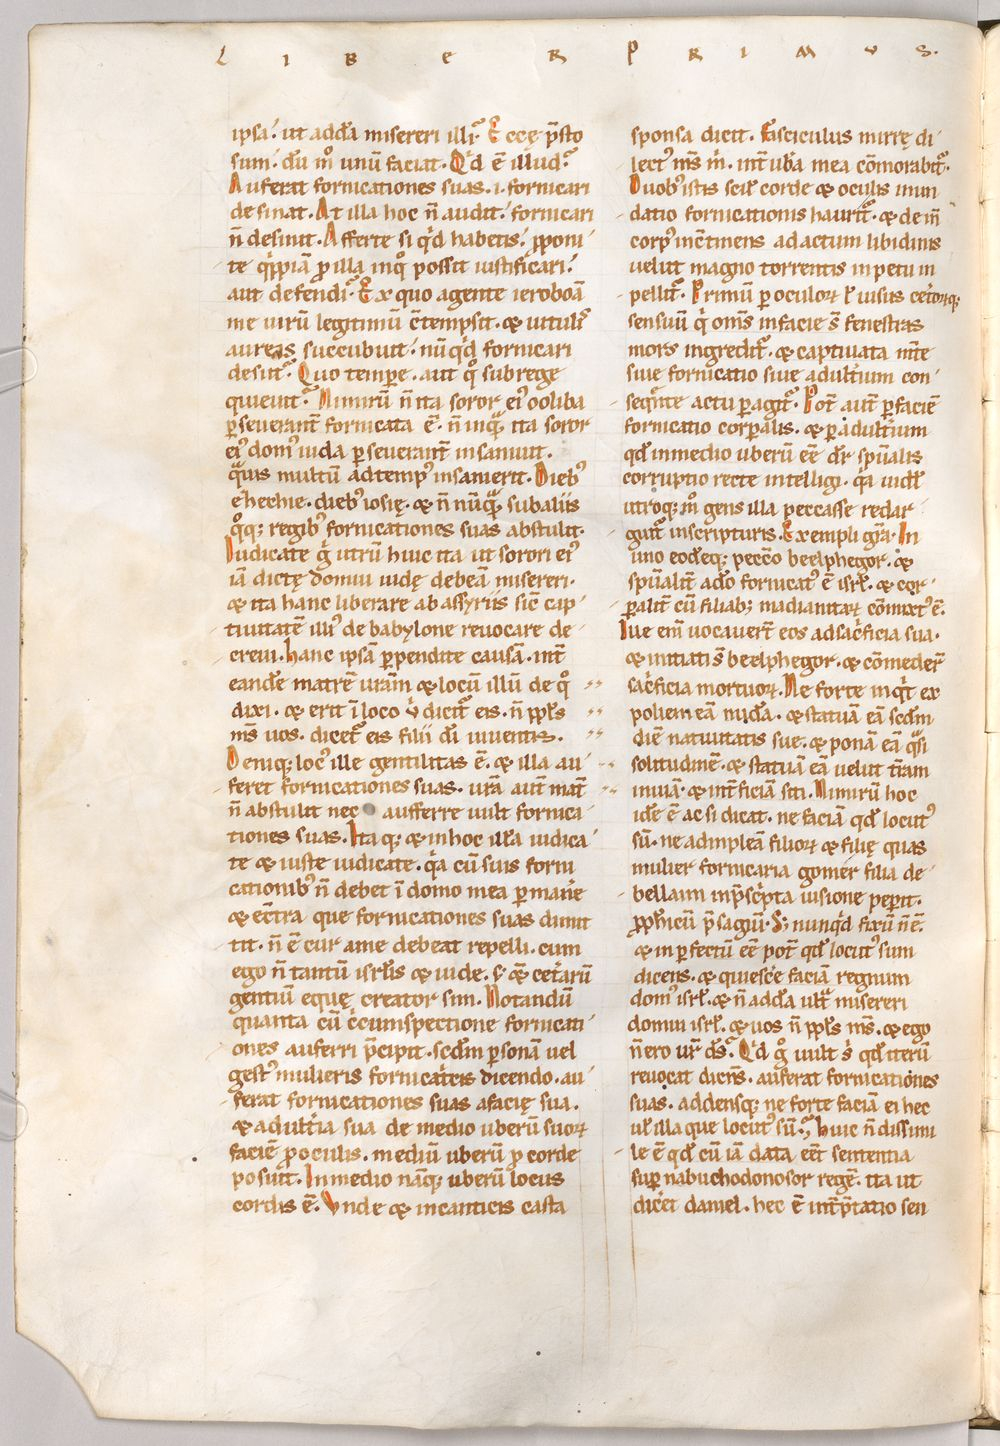 LIBER PRIMUS.
ipsa. ut addā misereri illi. Eccę p̄sto
sum. dū m̊ unū faciat. Qd ē illud.
Auferat fornicationes suas. i. fornicari
desinat. At illa hoc n̄ audit. fornicari
n̄ desinit. Afferte si qd habetis. ꝓponi
te qippiā ꝓ illa in qͦ possit iustificari.
aut defendi. Ex quo agente ieroboā
me uirū legitimū c̄tempsit. & uitulis
aureis succubuit. nūqd fornicari
desiit. Quo tempore. aut qͦ sub rege
quieuit. Nimirū n̄ ita soror ei' ooliba
ꝑseuerant̄ fornicata ē. n̄ inqͣ ita soror
ei' dom' iuda ꝑseuerant̄ insaniuit.
qͣuis multū ad temp' insanierit. Dieb'
ezechie. dieb' iosię. & n̄ nūqͣ sub aliis
qͦq; regib' fornicationes suas abstulit.
Iudicate g̊ utrū huic ita ut sorori ei'
iā dictę domui iudę debeā misereri.
& ita hanc liberare ab assyriis sic̄ cap
tiuitatē illi' de babylone reuocare de
creui. Hanc ipsā ꝑpendite causā. int̄
eandē matrē urā̄m & locū illū de qͦ
dixi. & erit ī loco ů dicit̄ eis. n̄ ppl's
m̄s uos. dicet̄ eis filii dī uiuentis.
Deniq; loc' ille gentilitas ē. & illa au
feret fornicationes suas. urā aut̄ mat̄
n̄ abstulit nec aufferre uult fornica
tiones suas. Itaq; & in hoc illā iudica
te & iuste iudicate. qa cū suis forni
cationib' n̄ debet ī domo mea ꝑmanē
& ec̄tra que fornicationes suas dimit
tit. n̄ ē cur a me debeat repelli. cum
ego n̄ tantū isrl'is & iudę. s; & cet̄arū
gentiū eque creator sim. Notandū
quanta cū c̄cumspectione fornicati
ones auferri p̄cipit. scdm ꝑsonā uel
gest' mulieris fornicat̄cis dicendo. au
ferat fornicationes suas a facię sua.
& adult̄ia sua de medio uberū suoꝝ
faciē ꝓ oculis. mediū uberū ꝓ corde
posuit. In medio nāq; uberū locus
cordis ē. Vnde & in canticis casta
sponsa dicit. Fasciculus mirrę di
lect' m̄s m̄. int̄ ub̄a mea cōmorabit̄.
Duob' istis scil' corde & oculis inun
datio fornicationis haurit̄. & dein̄
corp' inc̄tinens ad actum libidinis
uelut magno torrentis inpetu in
pellit̄. Primū ꝑ oculoꝝ l' uisus cet̄oꝝq;
sensuū q̇ om̄s in facie s̄ fenestras
mors ingredit̄. & captiuata m̄te
siue fornicatio siue adult̄ium con
seqn̄te actu ꝑagit̄. Pot̄ aut̄ ꝑ faciē
fornicatio corꝑalis. & ꝑ adult̄ium
qd in medio uberū eē dr̄ spūalis
corruptio recte intelligi. qa uidel'
utroq; m̊ gens illa peccasse redar
guit̄ in scripturis. Exempli grā. In
uno eodēq; peccō beelphegor. &
spūalit̄ a dō fornicat' ē isrl'. & cor
ꝑalit̄ cū filiab; madianitaꝝ cōmixt' ē.
Ille enī uocauer̄t eos ad sac̄ficia sua.
& initiati s̄ beelphegor. & cōmeder̄
sac̄ficia mortuoꝝ. Ne forte inqt ex
poliem eā nudā. & statuā eā scdm
diē natiuitatis sue. & ponā eā qͣsi
solitudinē. & statuā eā uelut t̄ram
inuiā. & int̄ficiā siti. Nimirū hoc
idē ē ac si dicat. ne faciā qd locut'
sū. ne adimpleā filioꝝ & filię quas
mulier fornicaria gomer filia de
belaim in p̄sc̄pta uisione peperit.
ꝓph̄icū p̄sagiū. S; nunqd fixū n̄ ē.
& in ꝑfectū eē pot̄ qd locut' sum
dicens. & quiescē faciā regnum
dom' isrl'. & n̄ addā ult̄ misereri
domui isrl'. & uos n̄ ppl's m̄s. & ego
n̄ ero ur̄ ds̄. Qd g̊ uult s' qd iterū
reuocat dicn̄s. auferat fornicationes
suas. addensq; ne forte faciā ei hec
ul' illa que locut' sū. Huic n̄ dissimi
le ē qd cū iā data eēt sententia
suꝑ nabuchodonosor regē. ita ut
dicēt daniel. hec ē int̄p̄tatio sen